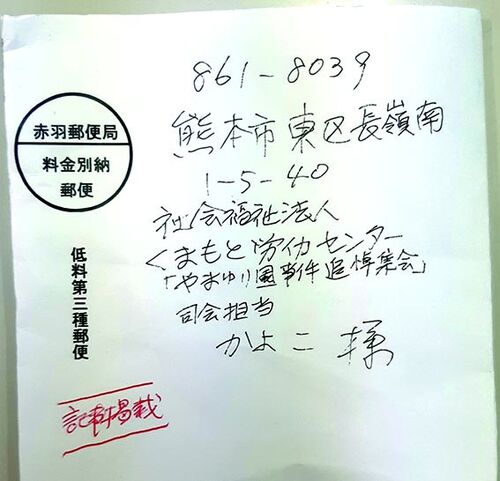 861-8039
熊本市東区長嶺南
1-5-40
社会福祉法人
くまもと労仂センター
「やまゆり園事件追悼集会」
司会担当
かよこ 様
赤羽郵便局
料金別納
郵便
低料第三種郵便
記事掲載